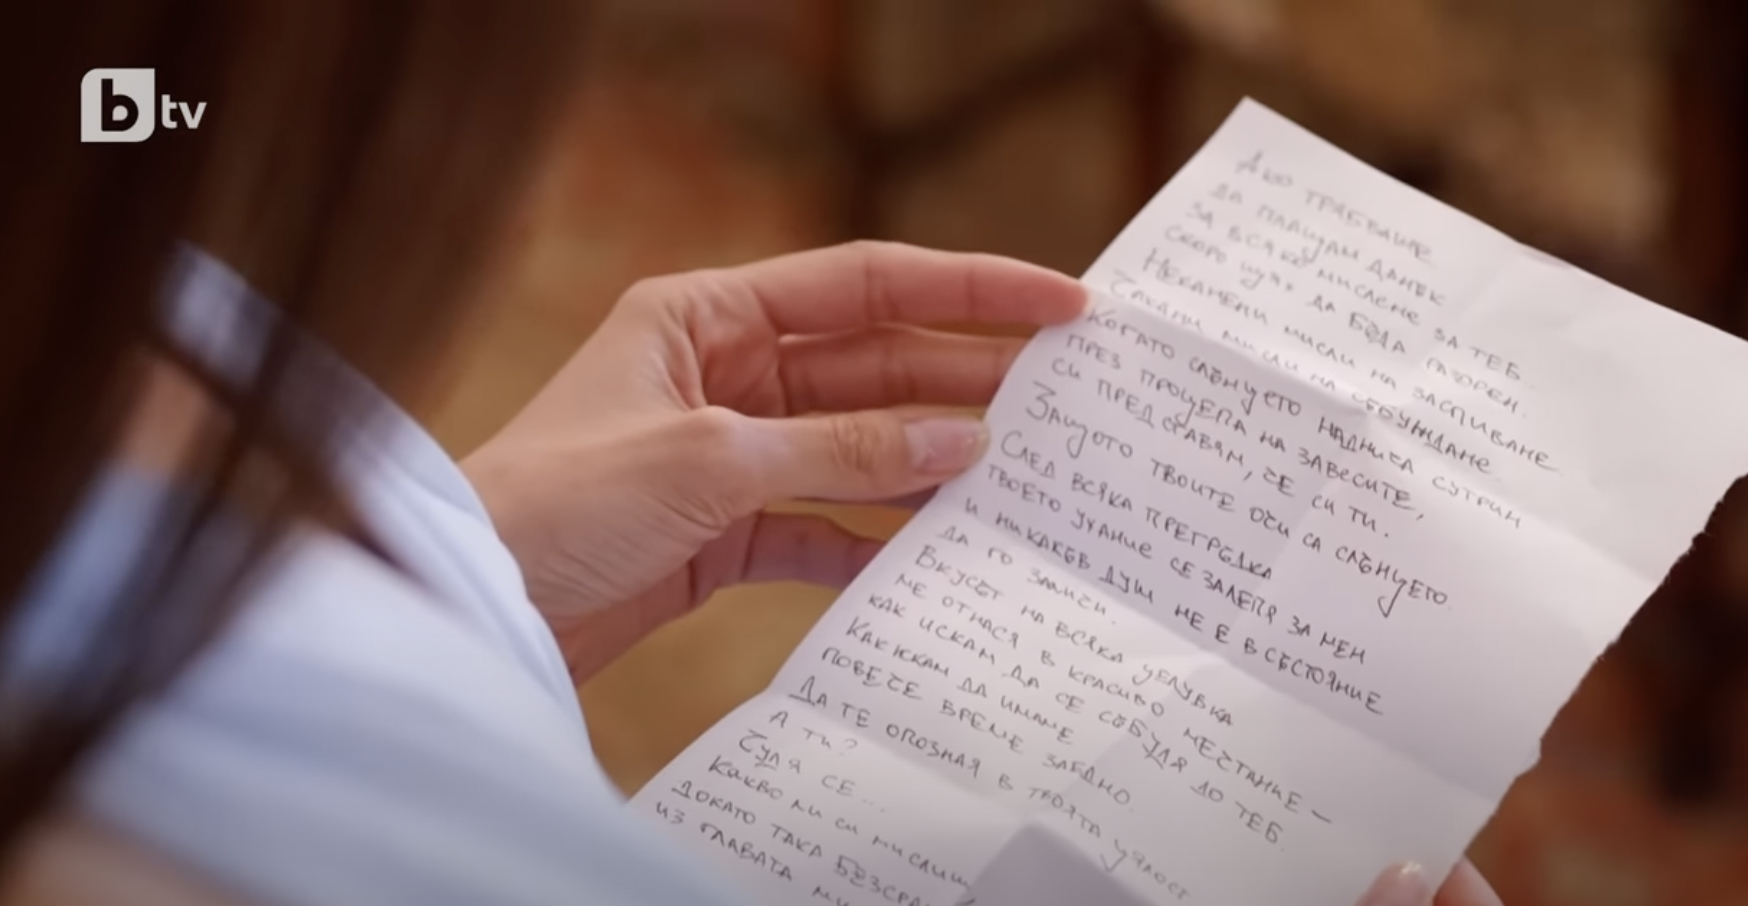 b tv
Ако трябваше
да плащам данък
за всяко мислене за теб
скоро щях да бъда разорен.
Неканени мисли на заспиване
Чакани мисли на събуждане
Когато слънцето надниса сутрин
през процепа на завесите,
си представям, че си ти.
Защото твоите очи са слънцето.
След всяка прегръдка
твоето ухание се залепя за мен
и никакъв душ не е в състояние
да го замени.
Вкусът на всяка целувка
ме отнася в красиво местание –
как искам да се събудя до теб.
Как искам да имаме
повече време заедно.
Да те опозная в твоята цялост
А ти?
Чудя се...
Какво ли си мислиш
докато така
из главата